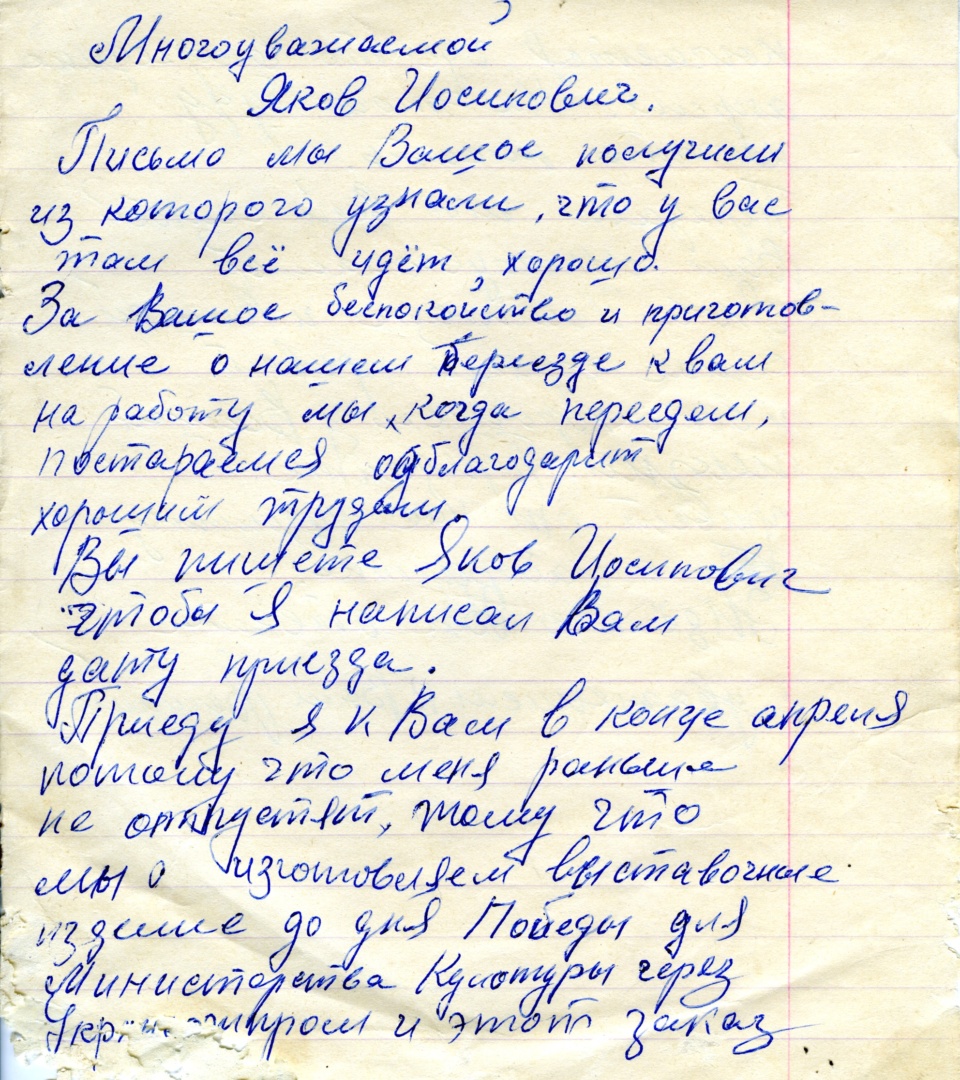 Многоуважаемой
Яков Иосипович.
Письмо мы Вашое получили
из которого узнали, что у вас
там всё идёт хорошо.
За Вашое беспокойство и приготов-
ление о нашем переезде к вам
на работу мы, когда переедем,
постараемся отблагодарит
хорошим трудом.
Вы пишете Яков Иосипович
чтобы я написал Вам
дату приезда.
Приеду я к Вам в конце апреля
потому что меня раньше
не отпустят, тому что
мы изготовляем выставочные
изделие до дня Победы для
Министерства Културы через
и этот заказ